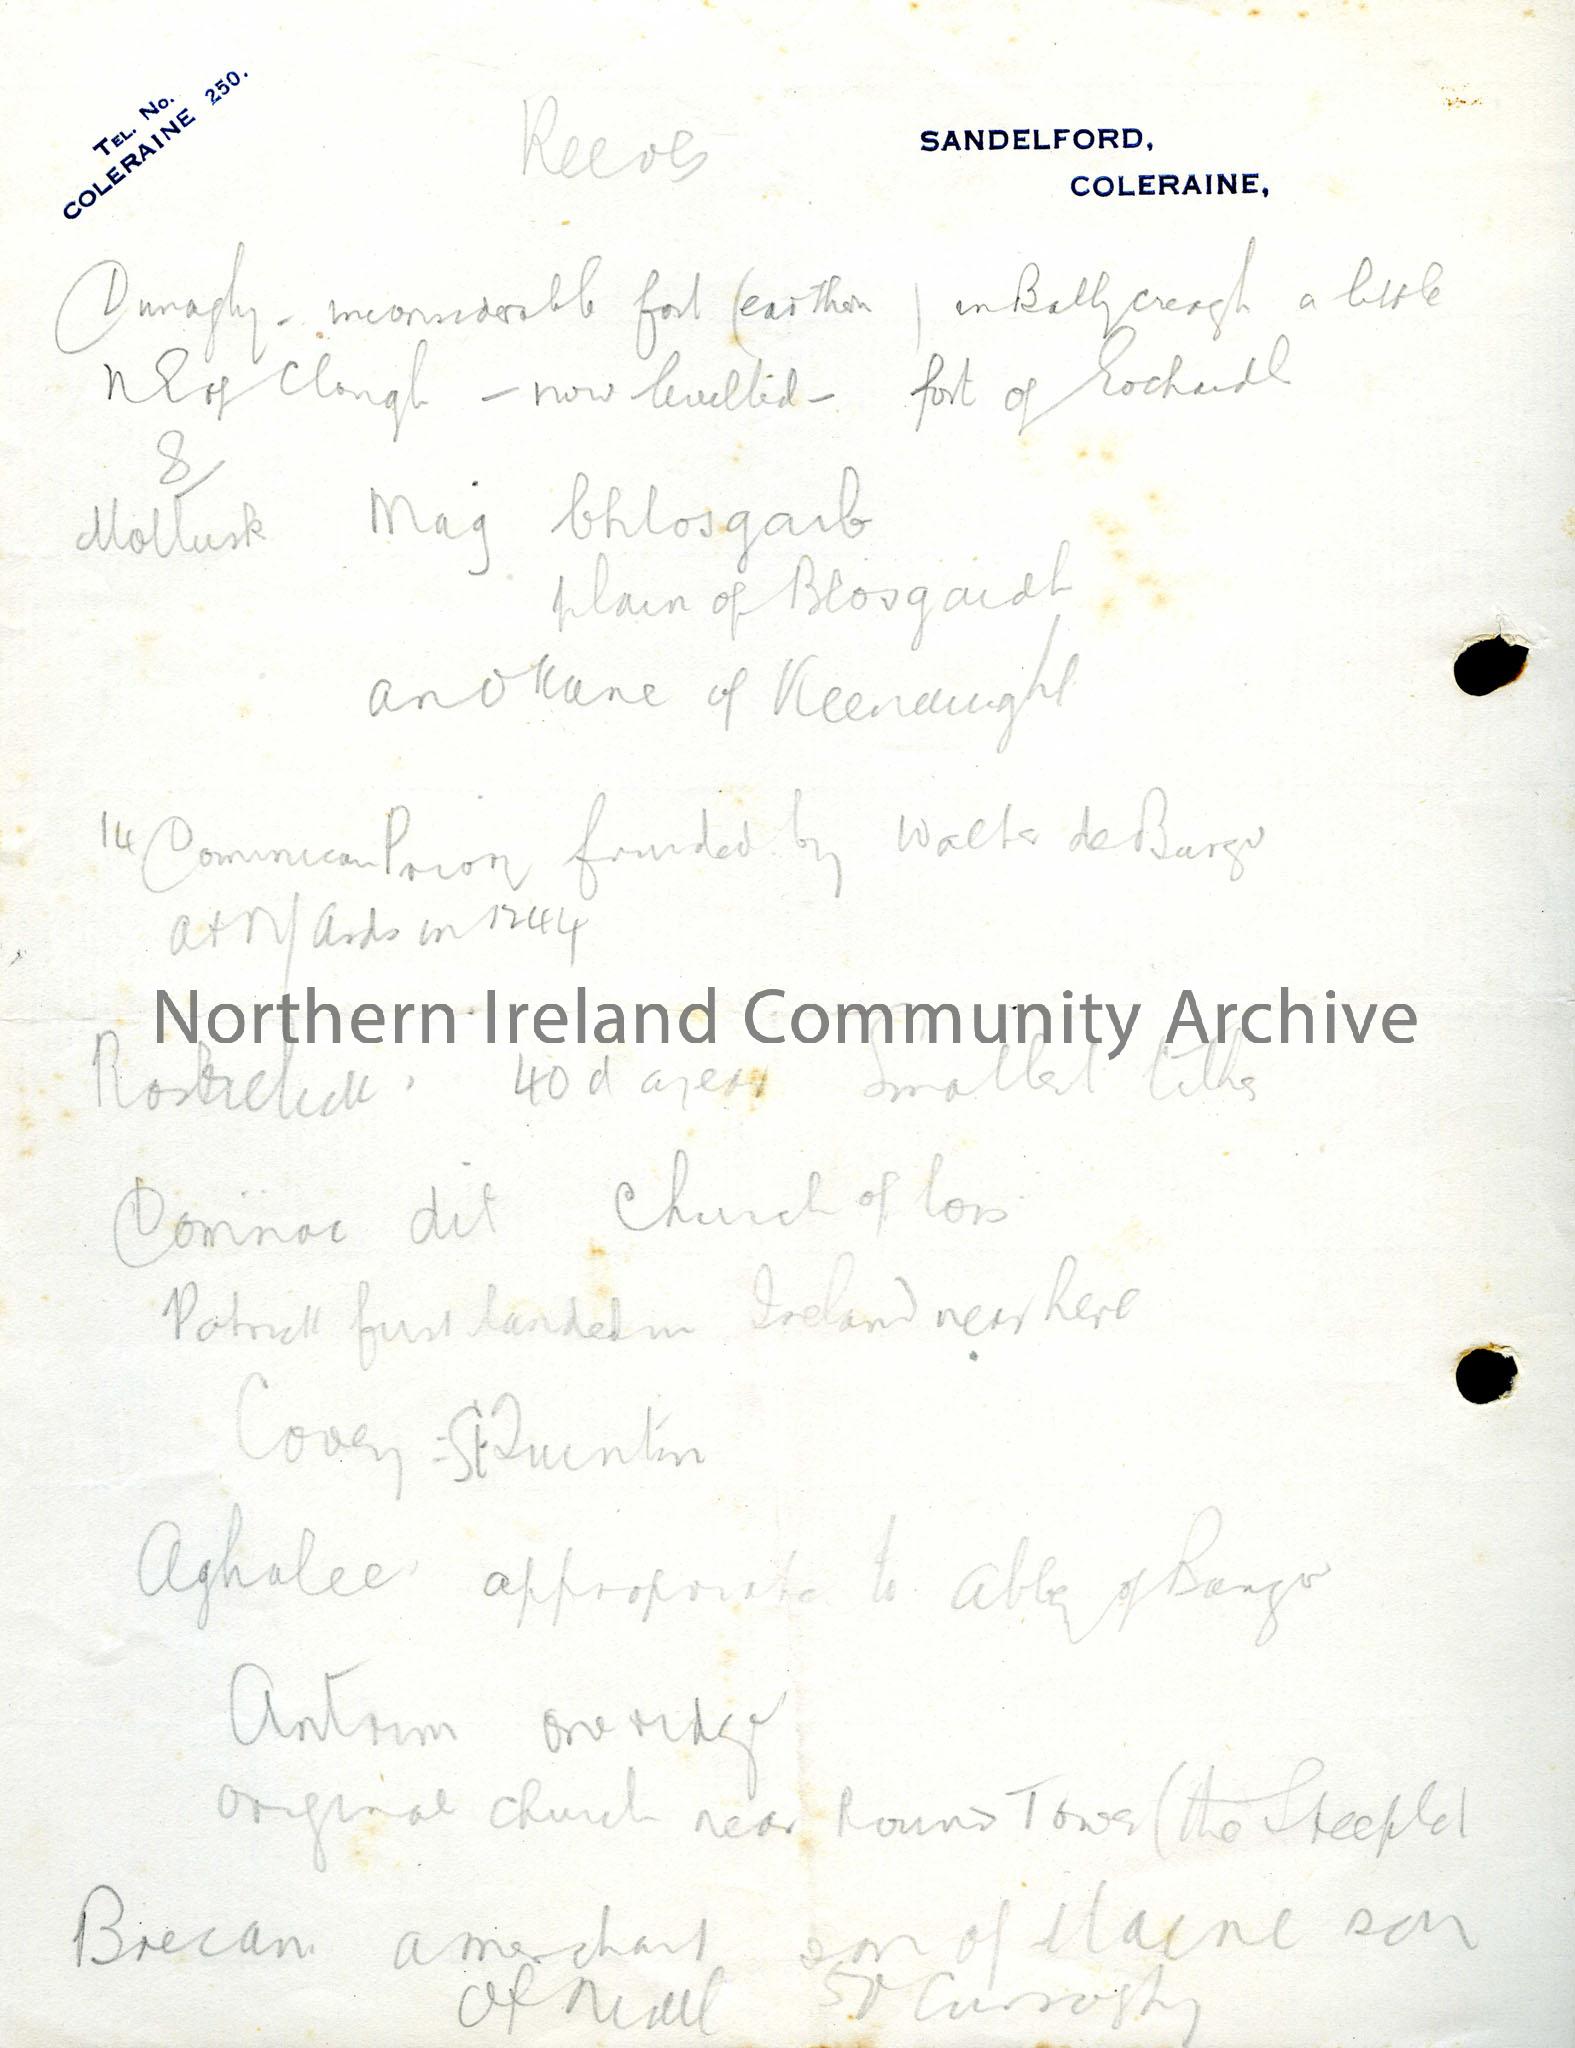 TEL. No.
COLERAINE 250.
Reeves
SANDELFORD,
COLERAINE,
Dunaghy - inconsiderable fort (earthen) in Ballycreagh a little
NE of Clough - now levelled - fort of Eochaidh
8/
Mollusk Mag bhlosgaib
plain of Blosgaidh
an O'Kane of Keenaught
14 Dominican Priory founded by Walter de Burgo
at N/Ards in 1244
Northern Ireland Community Archive
40d a year Smallest tithe
Domnac dit Church of loss
Patrick first landed in Ireland near here
Covey = St Quintin
Aghalee appropriate to Abbey of Bangor
Antrim one ridge
original church near Round Tower (the Steeple)
Brecan a merchant son of Maine son
of Niall so Curroghy